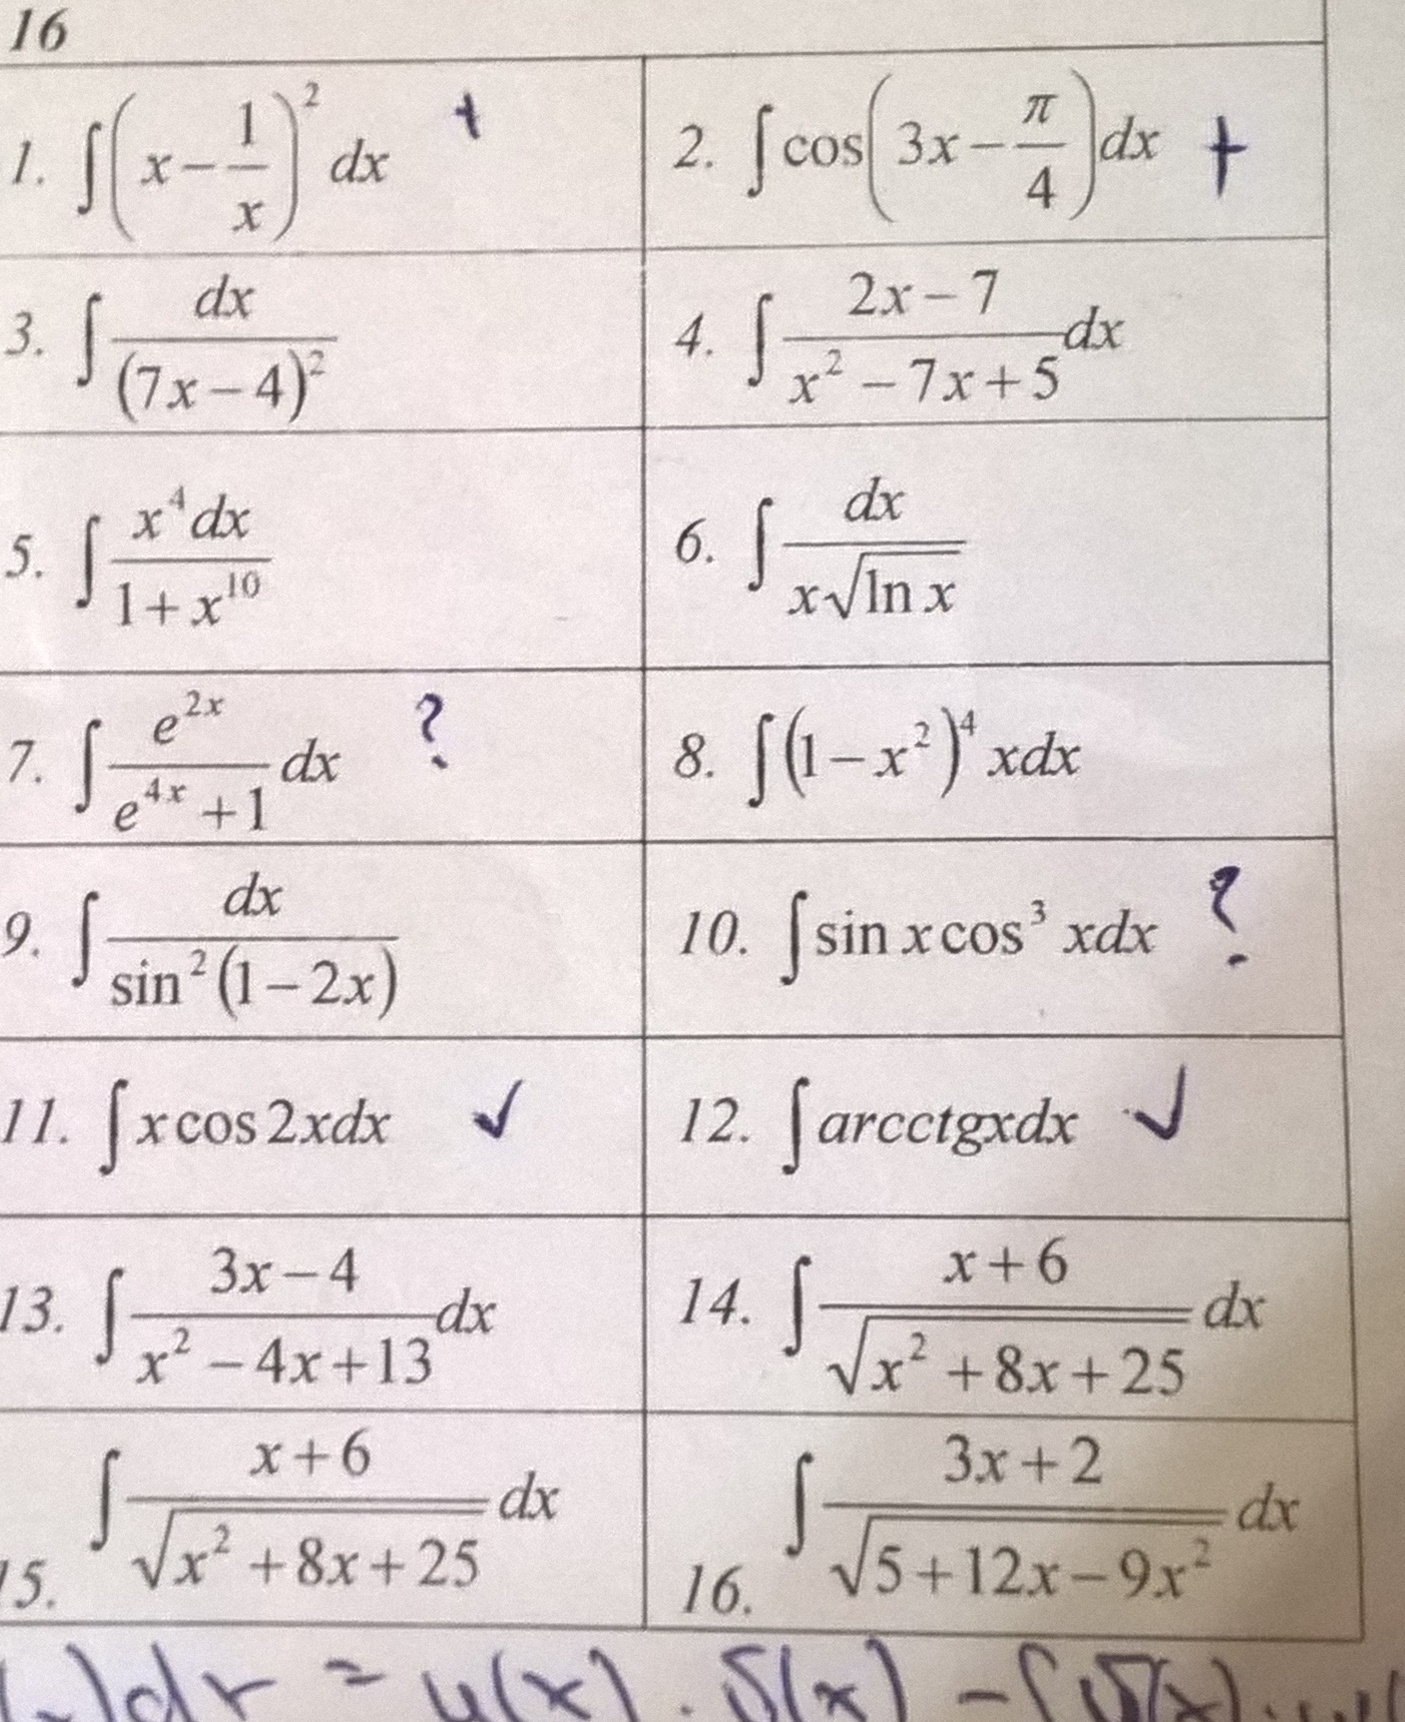 16
1. ∫(x − 1/x)² dx +
2. ∫cos(3x − π/4)dx +
3. ∫ dx/(7x − 4)²
4. ∫ (2x − 7)/(x² − 7x + 5) dx
5. ∫ x⁴dx/(1 + x¹⁰)
6. ∫ dx/(x√(ln x))
7. ∫ e²ˣ/(e⁴ˣ + 1) dx ?
8. ∫(1 − x²)⁴ xdx
9. ∫ dx/sin²(1 − 2x)
10. ∫sin x cos³ xdx ?
11. ∫x cos 2xdx ✓
12. ∫arcctgxdx ✓
13. ∫ (3x − 4)/(x² − 4x + 13) dx
14. ∫ (x + 6)/√(x² + 8x + 25) dx
15. ∫ (x + 6)/√(x² + 8x + 25) dx
16. ∫ (3x + 2)/√(5 + 12x − 9x²) dx
)dx = u(x) · v(x) − ∫v(x) ·